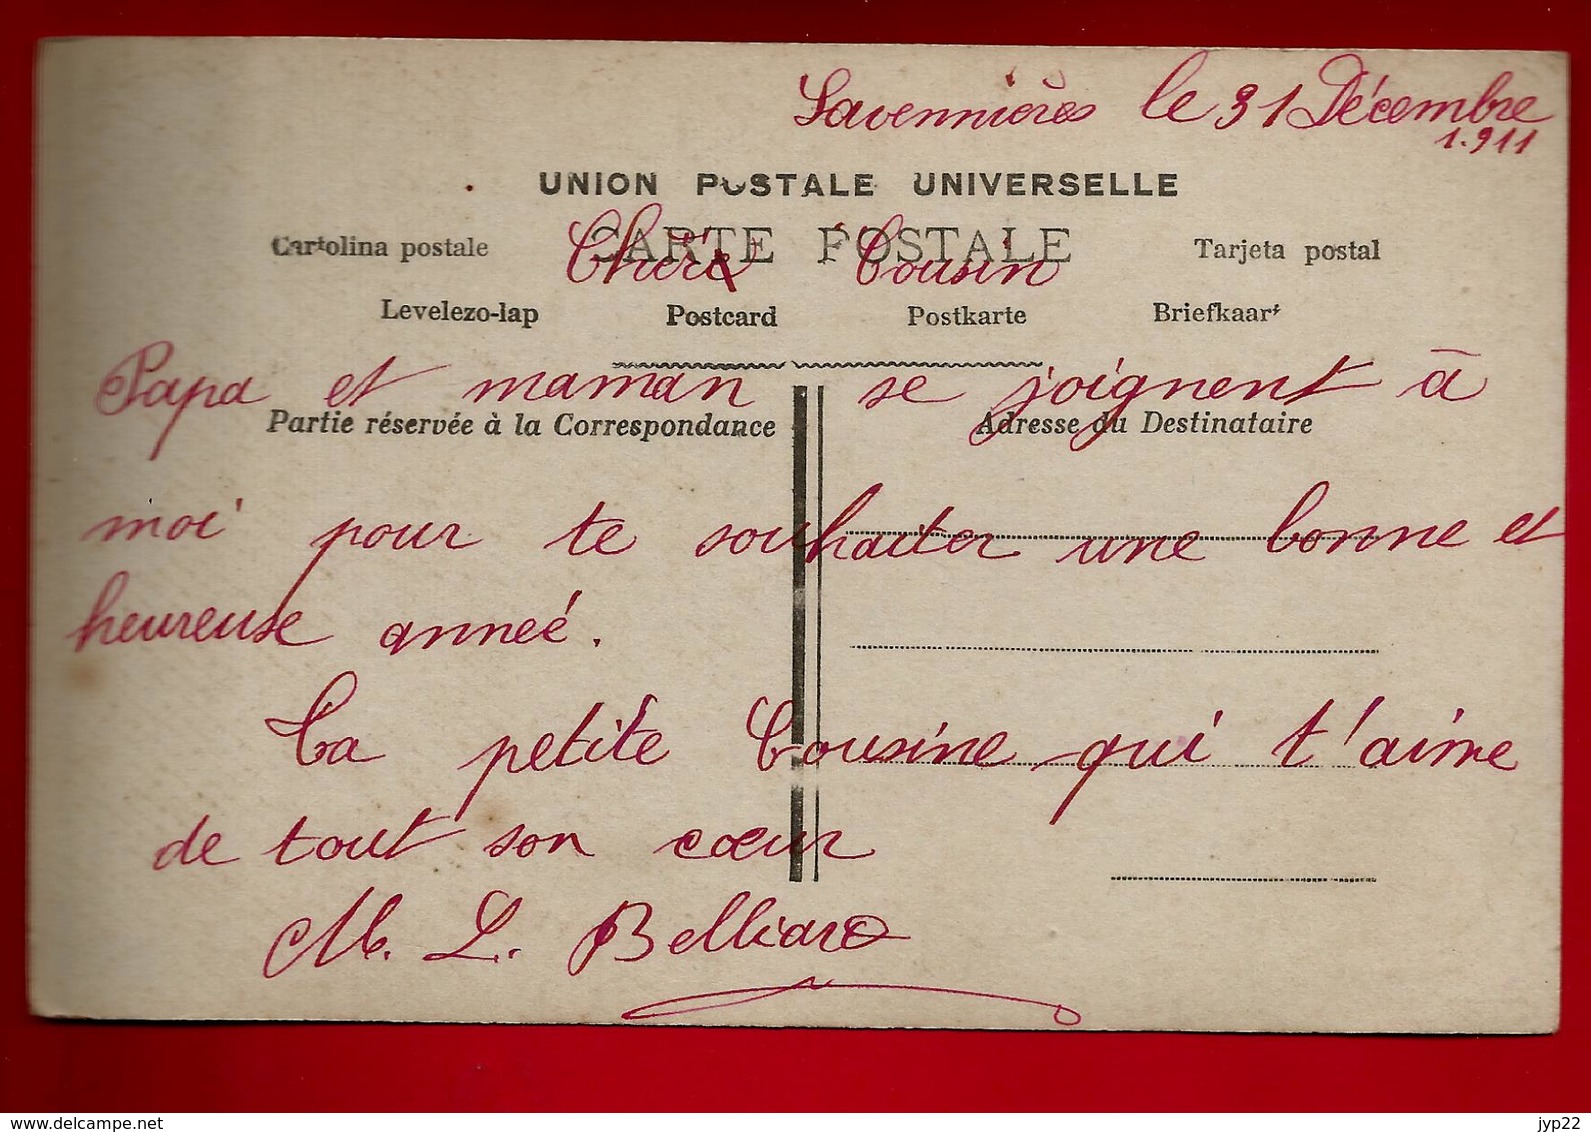 Savennières le 31 Décembre
1.911
UNION POSTALE UNIVERSELLE
CARTE POSTALE
Cartolina postale
Tarjeta postal
Cher Cousin
Levelezo-lap Postcard Postkarte Briefkaart
Papa et maman se joignent à
Partie réservée à la Correspondance
Adresse du Destinataire
moi pour te souhaiter une bonne et
heureuse anneé.
Ta petite Cousine qui t'aime
de tout son cœur
M. L. Belliard
www.delcampe.net
jyp22